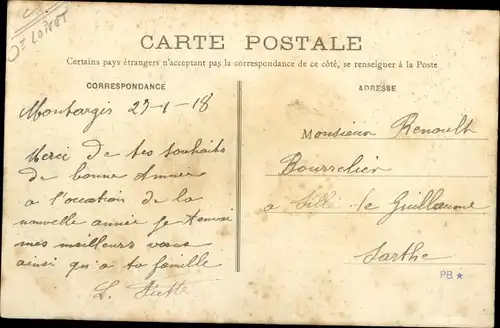 Dt LOIRET
CARTE POSTALE
Certains pays étrangers n'acceptant pas la correspondance de ce côté, se renseigner à la Poste
CORRESPONDANCE
Montargis 23-1-18
Merci de tes souhaits
de bonne Année
a l'occation de la
nouvelle année je t'envoi
mes meilleurs vœux
ainsi qu'a ta famille
L.
ADRESSE
Monsieur Renault
Bourrelier
a Sillé-le Guillaume
Sarthe
PB ★